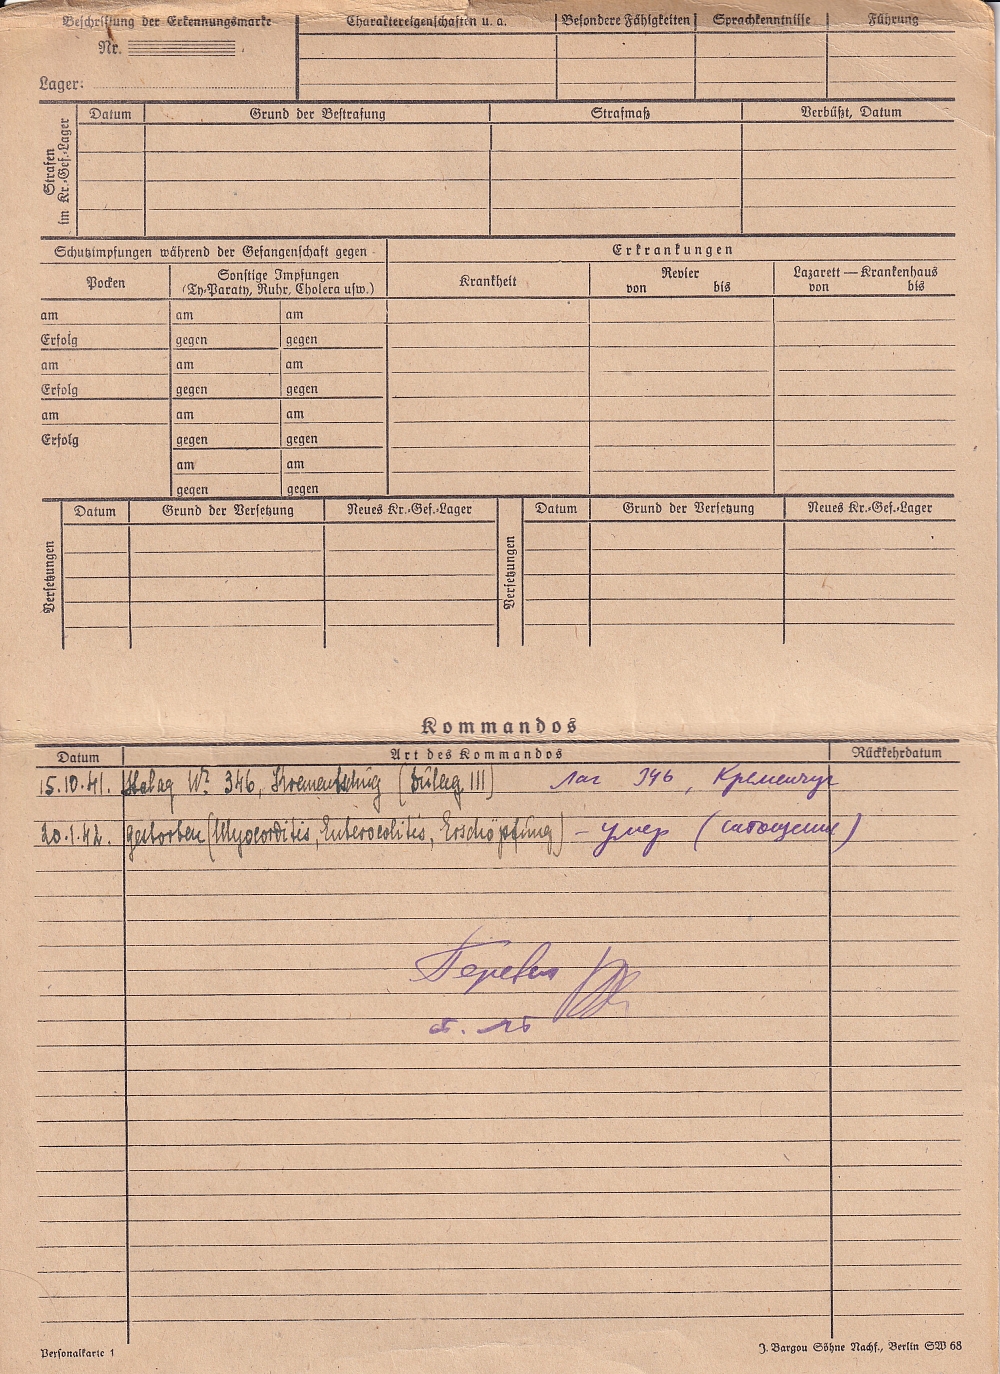 Beschriftung der Erkennungsmarke
Nr.
Lager:
Charaktereigenschaften u. a.
Besondere Fähigkeiten
Sprachkenntnisse
Führung
Strafen im Kr.-Gef.-Lager
Datum
Grund der Bestrafung
Strafmaß
Verbüßt, Datum
Schutzimpfungen während der Gefangenschaft gegen
Erkrankungen
Pocken
Sonstige Impfungen
(Ty-Paraty, Ruhr, Cholera usw.)
Krankheit
Revier
von bis
Lazarett — Krankenhaus
von bis
am am am
Erfolg gegen gegen
am am am
Erfolg gegen gegen
am am am
Erfolg gegen gegen
am am
gegen gegen
Versetzungen
Datum
Grund der Versetzung
Neues Kr.-Gef.-Lager
Versetzungen
Datum
Grund der Versetzung
Neues Kr.-Gef.-Lager
Kommandos
Datum
Art des Kommandos
Rückkehrdatum
15.10.41. Stalag Nr. 346, Krementschug (Dulag III) лаг 346, Кременчуг
20.1.42. gestorben (Myocarditis, Enterocolitis, Erschöpfung) – умер (истощение)
Personalkarte 1
J. Bargou Söhne Nachf., Berlin SW 68